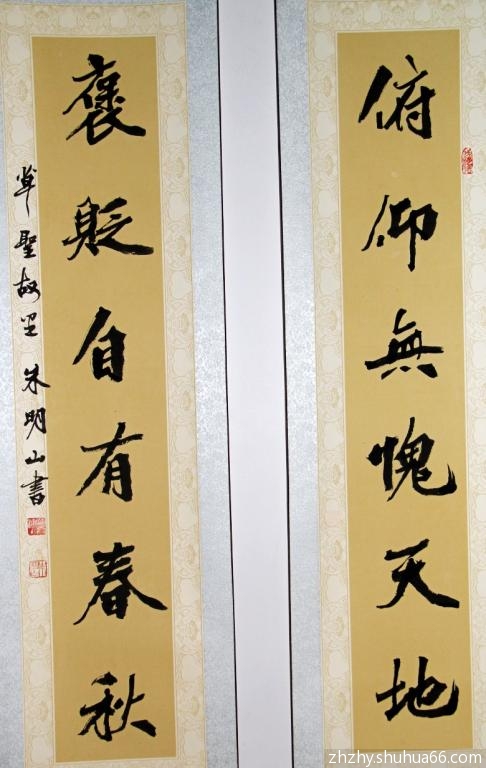 俯仰無愧天地
褒貶自有春秋
聖故里 朱明山書
zhzhyshuhua66.com